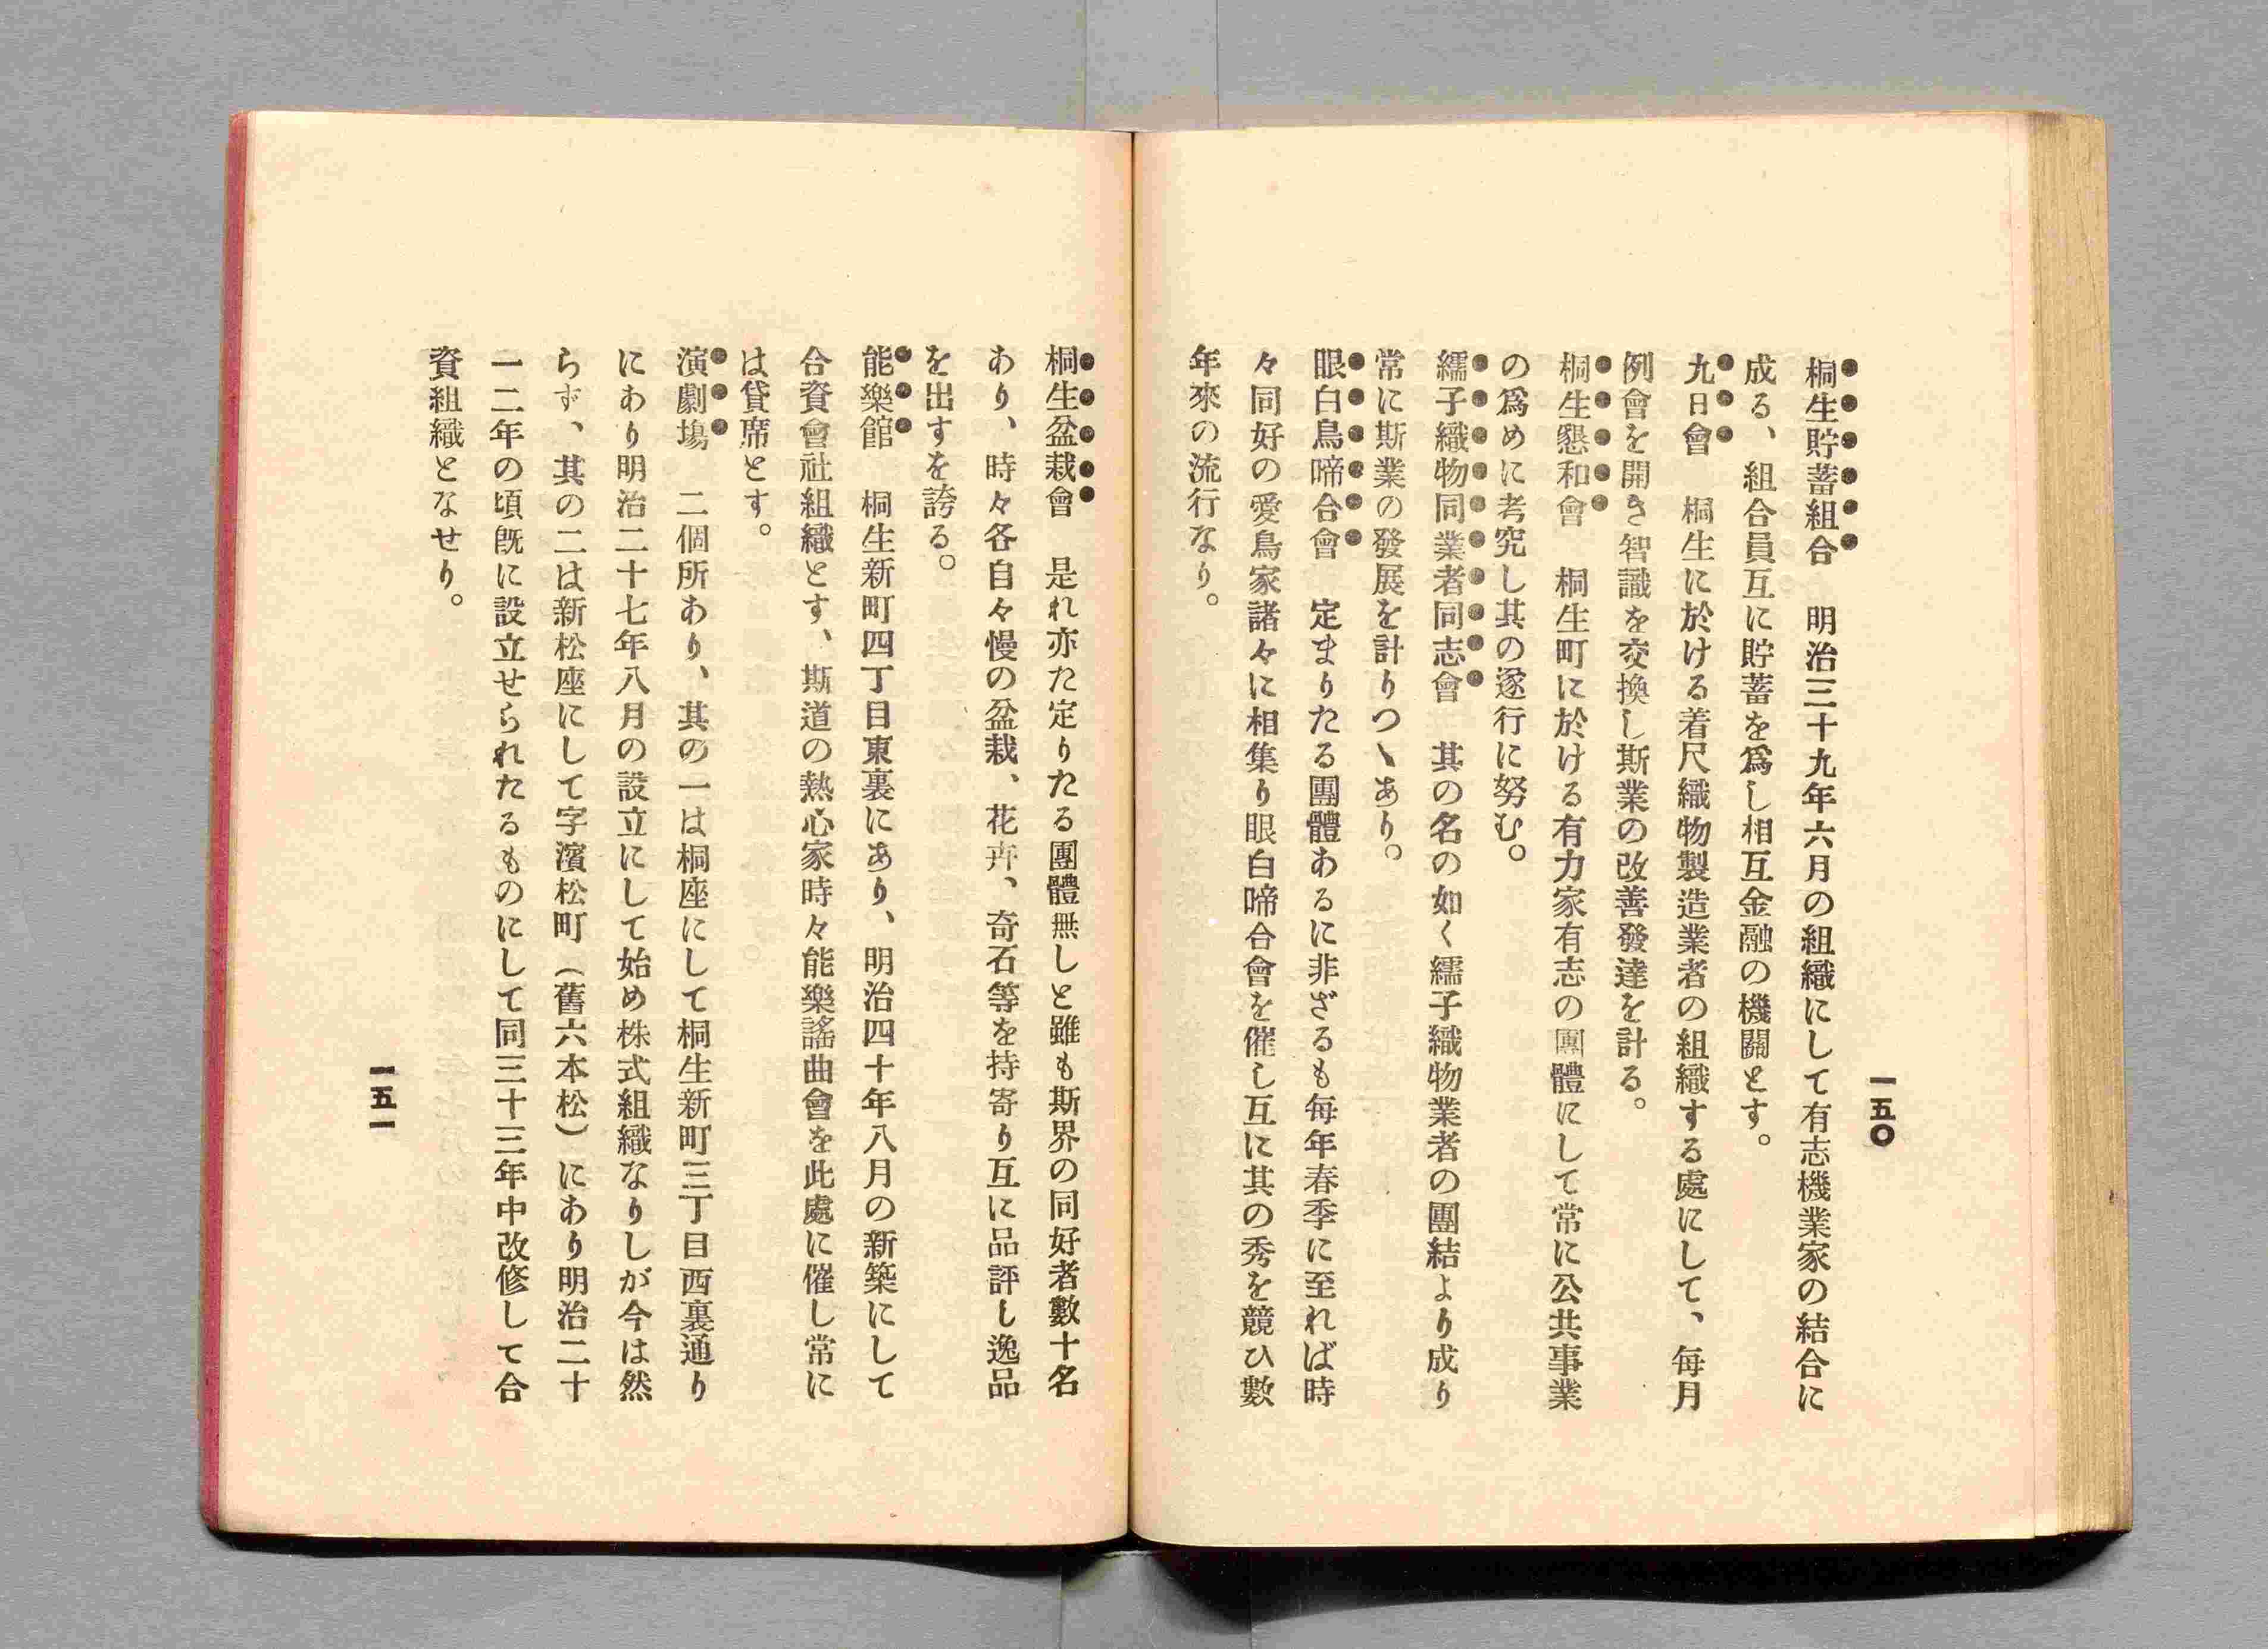 一五〇
桐生貯蓄組合　明治三十九年六月の組織にして有志機業家の結合に
成る、組合員互に貯蓄を爲し相互金融の機關とす。
九日會　桐生に於ける着尺織物製造業者の組織する處にして、毎月
例會を開き智識を交換し斯業の改善發達を計る。
桐生懇和會　桐生町に於ける有力家有志の團體にして常に公共事業
の爲めに考究し其の遂行に努む。
繻子織物同業者同志會　其の名の如く繻子織物業者の團結より成り
常に斯業の發展を計りつゝあり。
眼白鳥啼合會　定まりたる團體あるに非ざるも毎年春季に至れば時
々同好の愛鳥家諸々に相集り眼白啼合會を催し互に其の秀を競ひ數
年來の流行なり。
桐生盆栽會　是れ亦た定りたる團體無しと雖も斯界の同好者數十名
あり、時々各自々慢の盆栽、花卉、奇石等を持寄り互に品評し逸品
を出すを誇る。
能樂館　桐生新町四丁目東裏にあり、明治四十年八月の新築にして
合資會社組織とす、斯道の熱心家時々能樂謠曲會を此處に催し常に
は貸席とす。
演劇塲　二個所あり、其の一は桐座にして桐生新町三丁目西裏通り
にあり明治二十七年八月の設立にして始め株式組織なりしが今は然
らず、其の二は新松座にして字濱松町（舊六本松）にあり明治二十
一二年の頃既に設立せられたるものにして同三十三年中改修して合
資組織となせり。
一五一